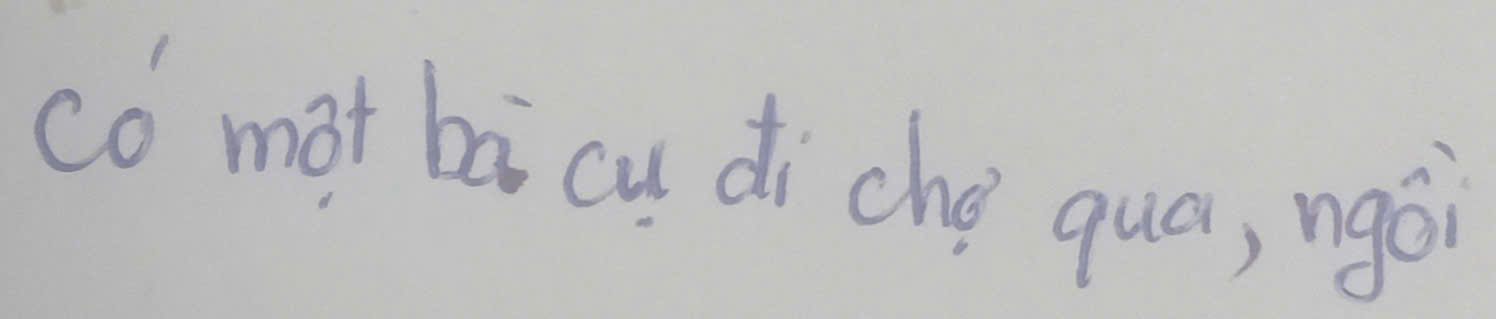 Có một bà cụ đi chợ qua, ngồi